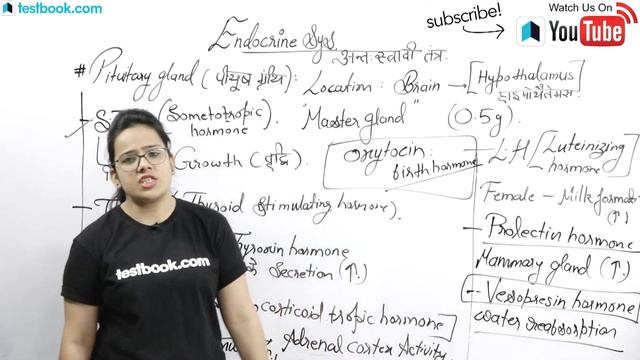 testbook.com
subscribe!
Watch Us On
You Tube
Endocrine Sys.
अन्तः स्त्रावी तंत्र.
# Pituitary gland (पीयूष ग्रंथि): Location: Brain → [Hypothalamus
हाइपोथैलेमस
(Sometotropic hormone). "Master gland" (0.5g).
Growth (वृद्धि).
Oxytocin: birth hormone
- LH [Luteinizing hormone
Female - Milk format
(↑)
Thyroid Stimulating hormone).
hormone
Secretion (↑).
- Prolectin hormone
Mammary gland (↑)
- Vesopresin hormone
water reabsorption
corticoid tropic hormone]
Adrenal cortex Activity
testbook.com